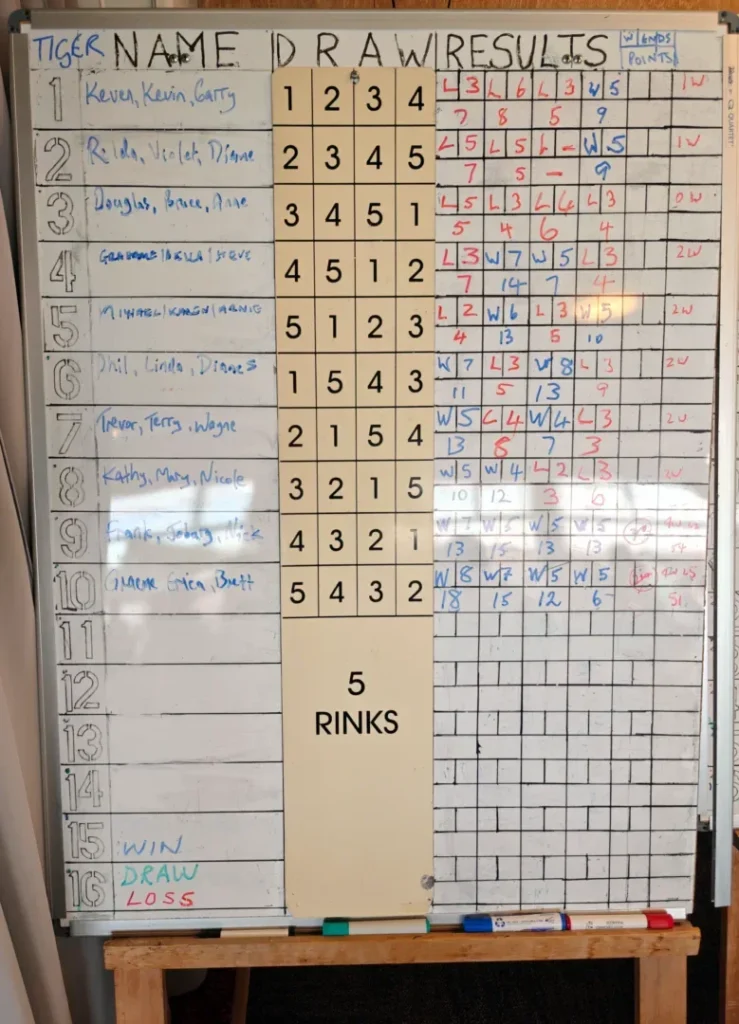 TIGER NAME DRAW RESULTS W ENDS
POINTS
1 Keven, Kevin, Garry 1 2 3 4 L 3 L 6 L 3 W 5 1W
7 8 5 9
2 Rilda, Violet, Dianne 2 3 4 5 L 5 L 5 L - W 5 1W
7 5 - 9
3 Douglas, Bruce, Anne 3 4 5 1 L 5 L 3 L 4 L 3 0W
5 4 6 4
4 4 5 1 2 L 3 W 7 W 5 L 3 2W
7 14 7 4
5 5 1 2 3 L 2 W 6 L 3 W 5 2W
4 13 5 10
6 Phil, Linda, Diannes 1 5 4 3 W 7 L 3 W 8 L 3 2W
11 5 13 9
7 Trevor, Terry, Wayne 2 1 5 4 W 5 L 4 W 4 L 3 2W
13 8 7 3
8 Kathy, Mary, Nicole 3 2 1 5 W 5 W 4 L 2 L 3 2W
10 12 3 6
9 Frank, Nick 4 3 2 1 W 7 W 5 W 5 W 5
13 15 13 13
10 Graeme Erica, Brett 5 4 3 2 W 8 W 7 W 5 W 5
18 15 12 6 51
11
12
13
14
15 WIN
16 DRAW
LOSS
5
RINKS